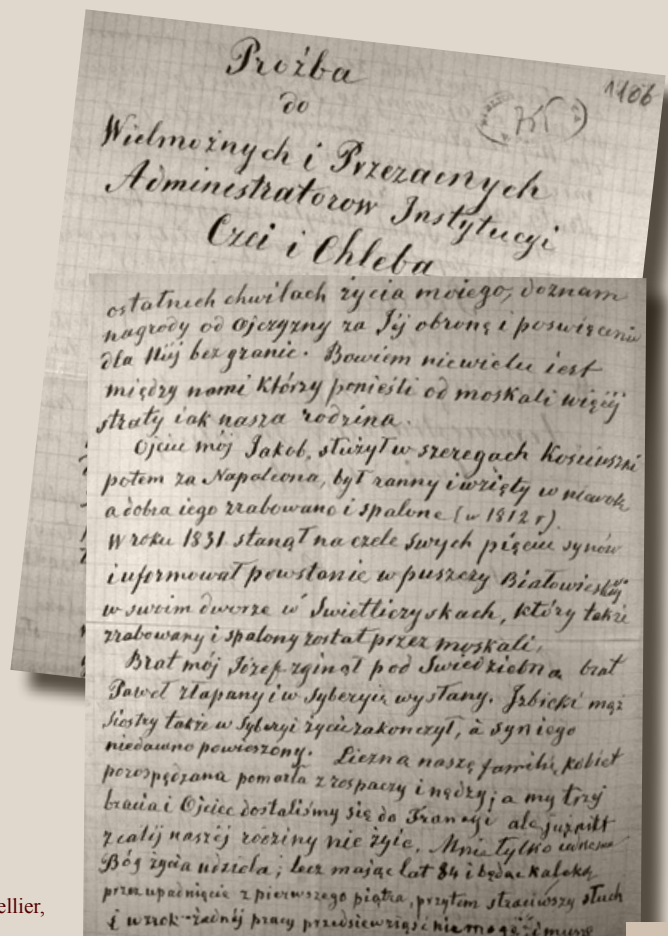 Proźba
do
1106
Wielmożnych i Przezacnych
Administratorow Instytucyi
Czci i Chleba
ostatnich chwilach życia moiego, doznam
nagrody od ojczyzny za Jéj obronę i poswięcenie
dla Niéj bez granic. Bowiem niewielu iest
między nami którzy ponieśli od moskali więcéj
straty iak nasza rodzina.
Ojciec mój Jakob, służył w szeregach Kościuszki
potem za Napoleona, był ranny i wzięty w niewolę
a dobra iego zrabowano i spalone (w 1812 r).
W roku 1831 stanął na czele swych pięciu synów
i uformował powstanie w puszczy Białowieskiéj
w swoim dworze w Swietliczyskach, który także
zrabowany i spalony został przez moskali.
Brat mój Józef zginął pod Swiedziebna, brat
Paweł złapany i w Syberyią wysłany. Izbicki mąż
siostry także w Syberyi życie zakonczył, à syn iego
niedawno powieszony. Liczna naszę familię, kobiet
porozpędzana pomarła z rospaczy i nędzy; a my trzy
bracia i Ojciec dostaliśmy się do Francyi ale już nikt
z całéj naszéj rodziny nie żyie. Mnie tylko
Bóg życia udziela; lecz mając lat 84 i będąc kaleką
przez upadnięcie z pierwszego piątra, przytem straciwszy słuch
i wzrok żadnéj pracy przedsiewziąść nie mogę i muszę
ellier,